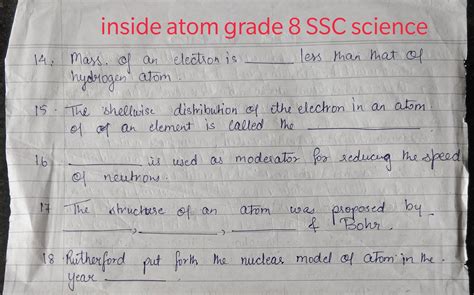 inside atom grade 8 SSC science
14. Mass of an electron is ______ less than that of
hydrogen atom.
15. The shellwise distribution of the electron in an atom
of of an element is called the ______
16 ______ is used as moderator for reducing the speed
of neutrons.
17 The structure of an atom was proposed by
______, ______, ______ & Bohr.
18. Rutherford put forth the nuclear model of atom in the
year ______